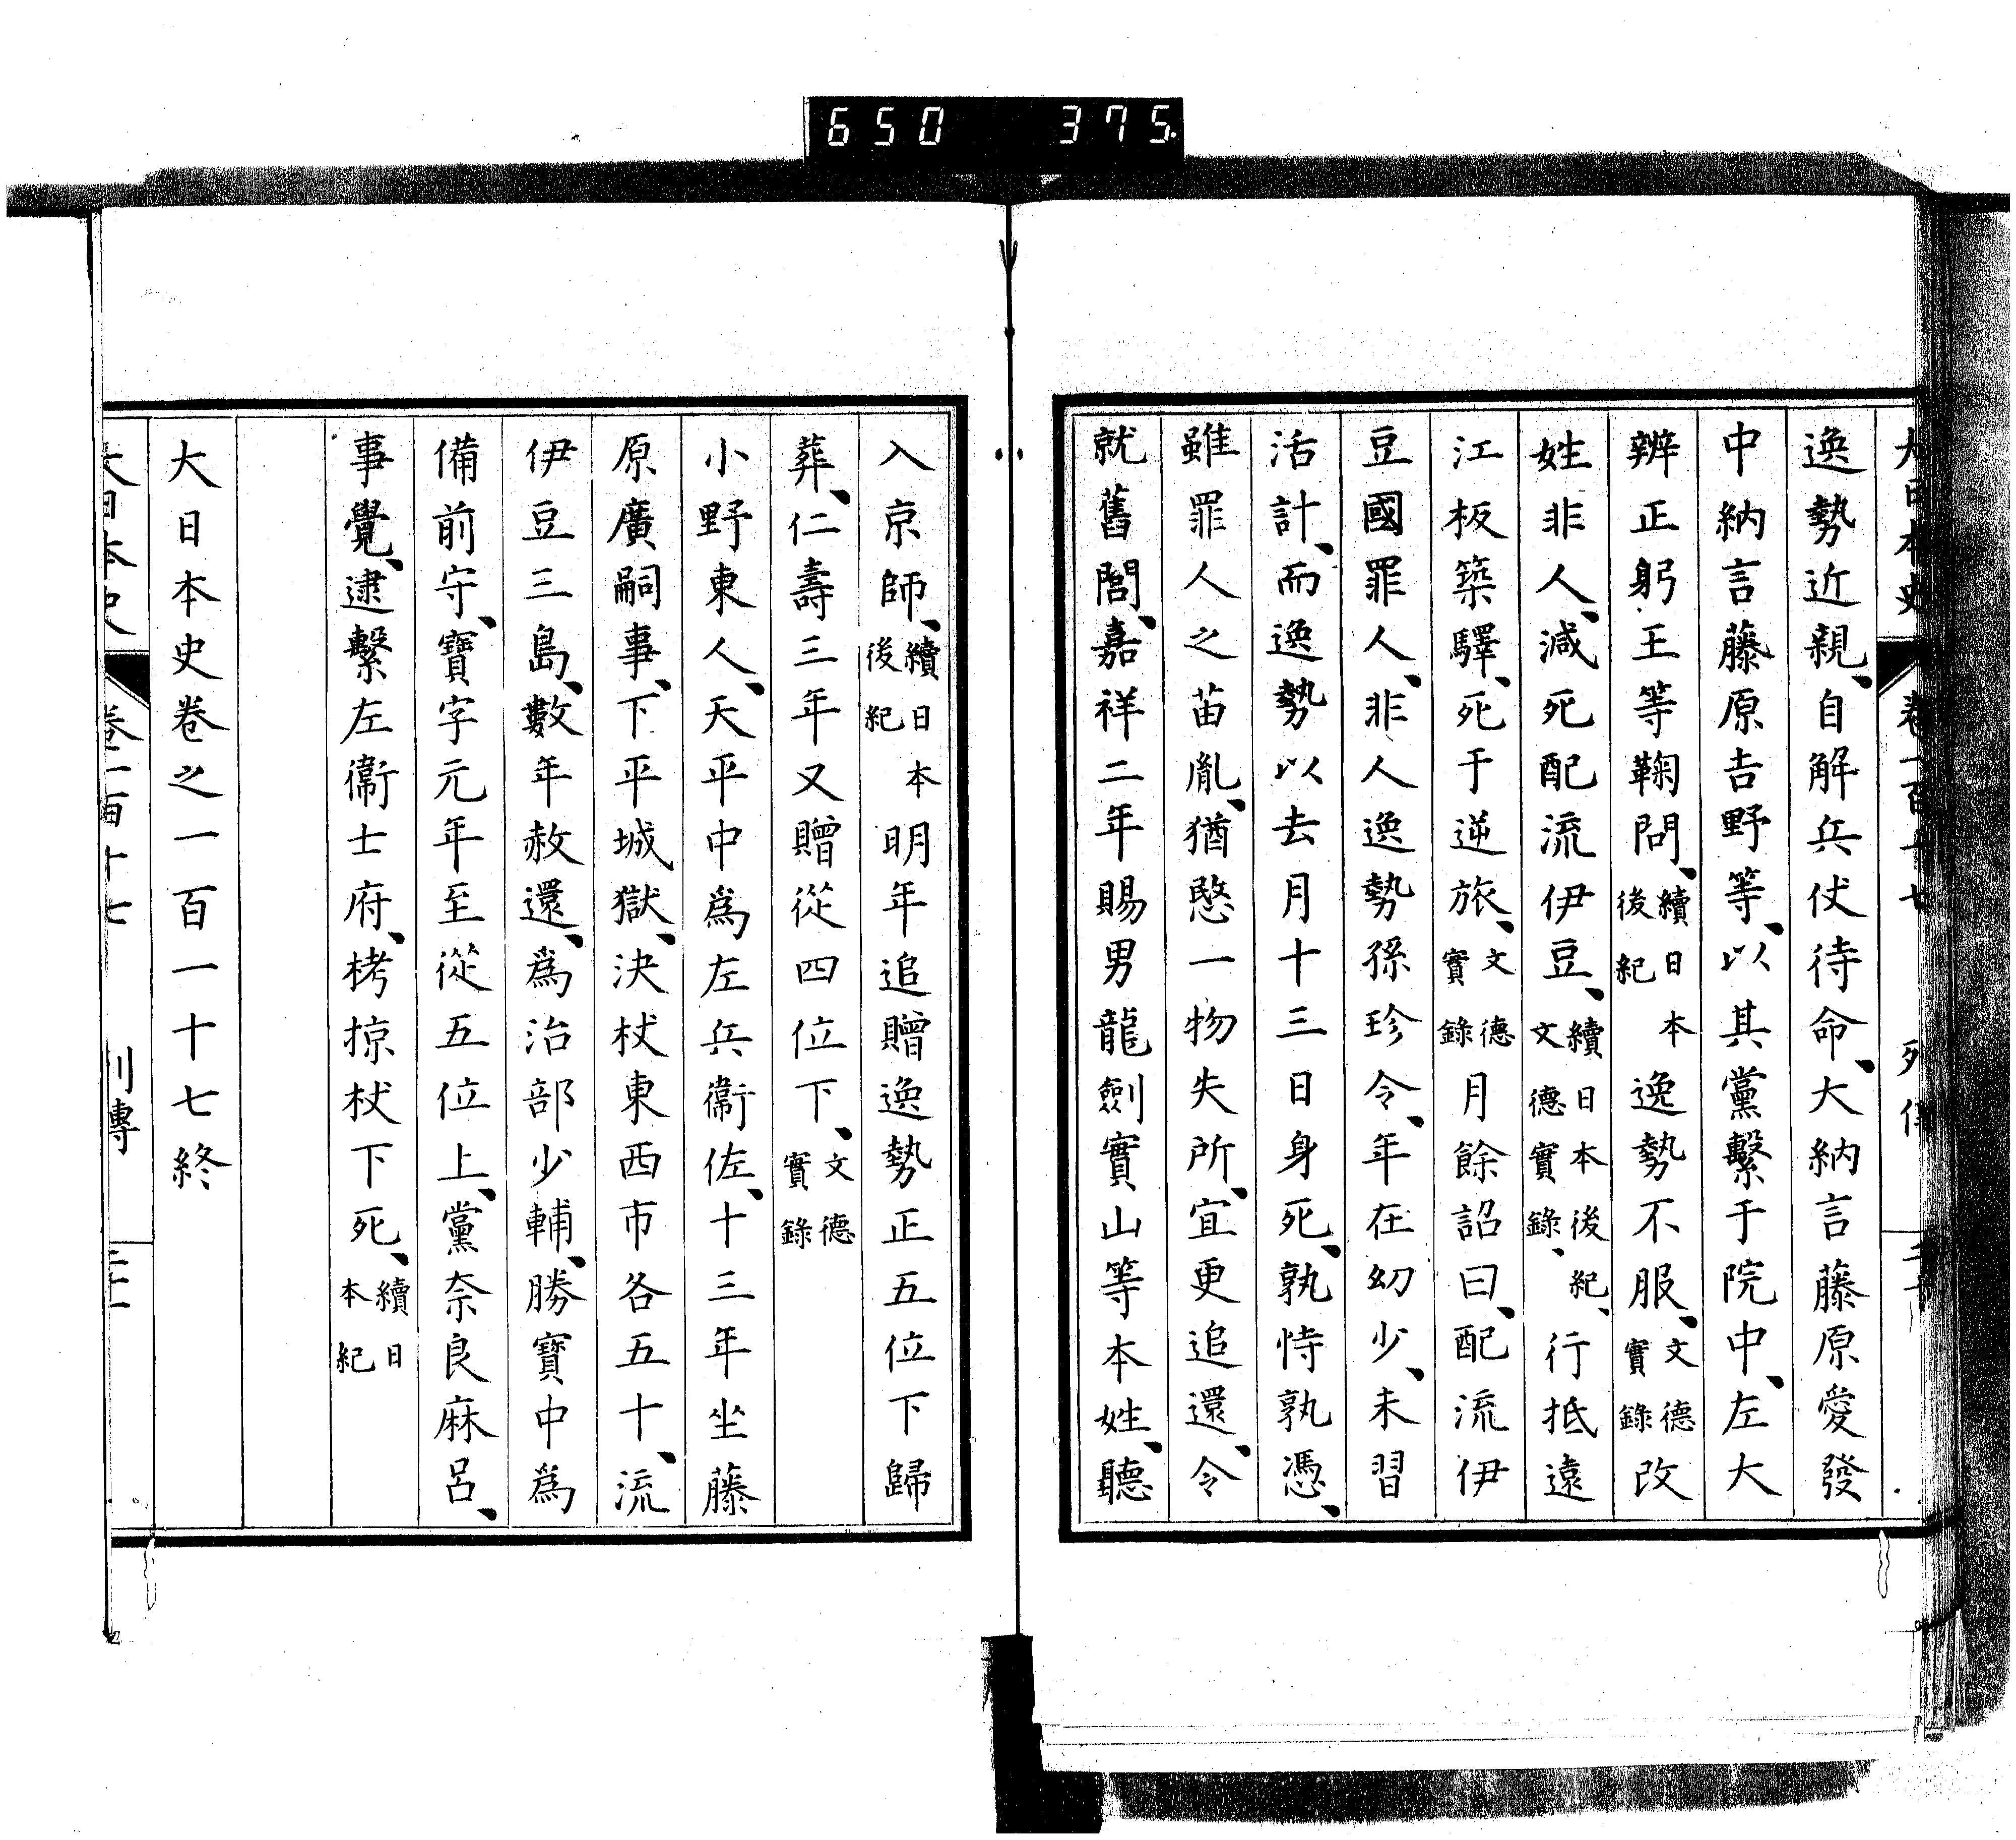 650 375.
逸勢近親、自解兵仗待命、大納言藤原愛發
中納言藤原吉野等、以其黨繫于院中、左大
辨正躬王等鞠問、續日本後紀逸勢不服、文德實錄改
姓非人、減死配流伊豆、續日本後紀、文德實錄、行抵遠
江板築驛、死于逆旅、文德實錄月餘詔曰、配流伊
豆國罪人、非人逸勢孫珍令、年在幼少、未習
活計、而逸勢以去月十三日身死、孰恃孰憑、
雖罪人之苗胤、猶愍一物失所、宜更追還、令
就舊閭、嘉祥二年賜男龍劍實山等本姓、聽
入京師、續日本後紀明年追贈逸勢正五位下歸
葬、仁壽三年又贈從四位下、文德實錄
小野東人、天平中爲左兵衞佐、十三年坐藤
原廣嗣事、下平城獄、決杖東西市各五十、流
伊豆三島、數年赦還、爲治部少輔、勝寶中爲
備前守、寶字元年至從五位上、黨奈良麻呂、
事覺、逮繫左衞士府、栲掠杖下死、續日本紀
大日本史卷之一百一十七終
大日本史 卷一百十七 列傳